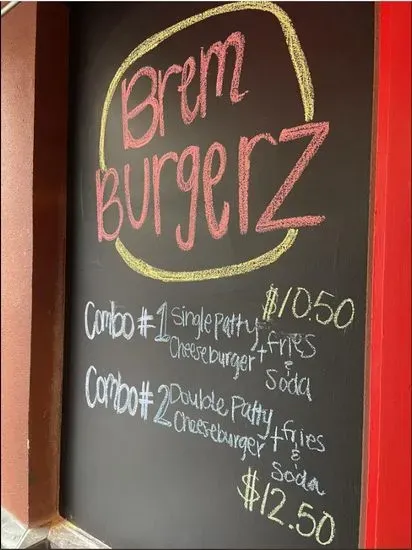 Brem
BurgerZ
$10.50
Combo #1 Single patty
Cheeseburger + fries
& Soda
Combo #2 Double Patty
Cheeseburger + fries
& Soda
$12.50